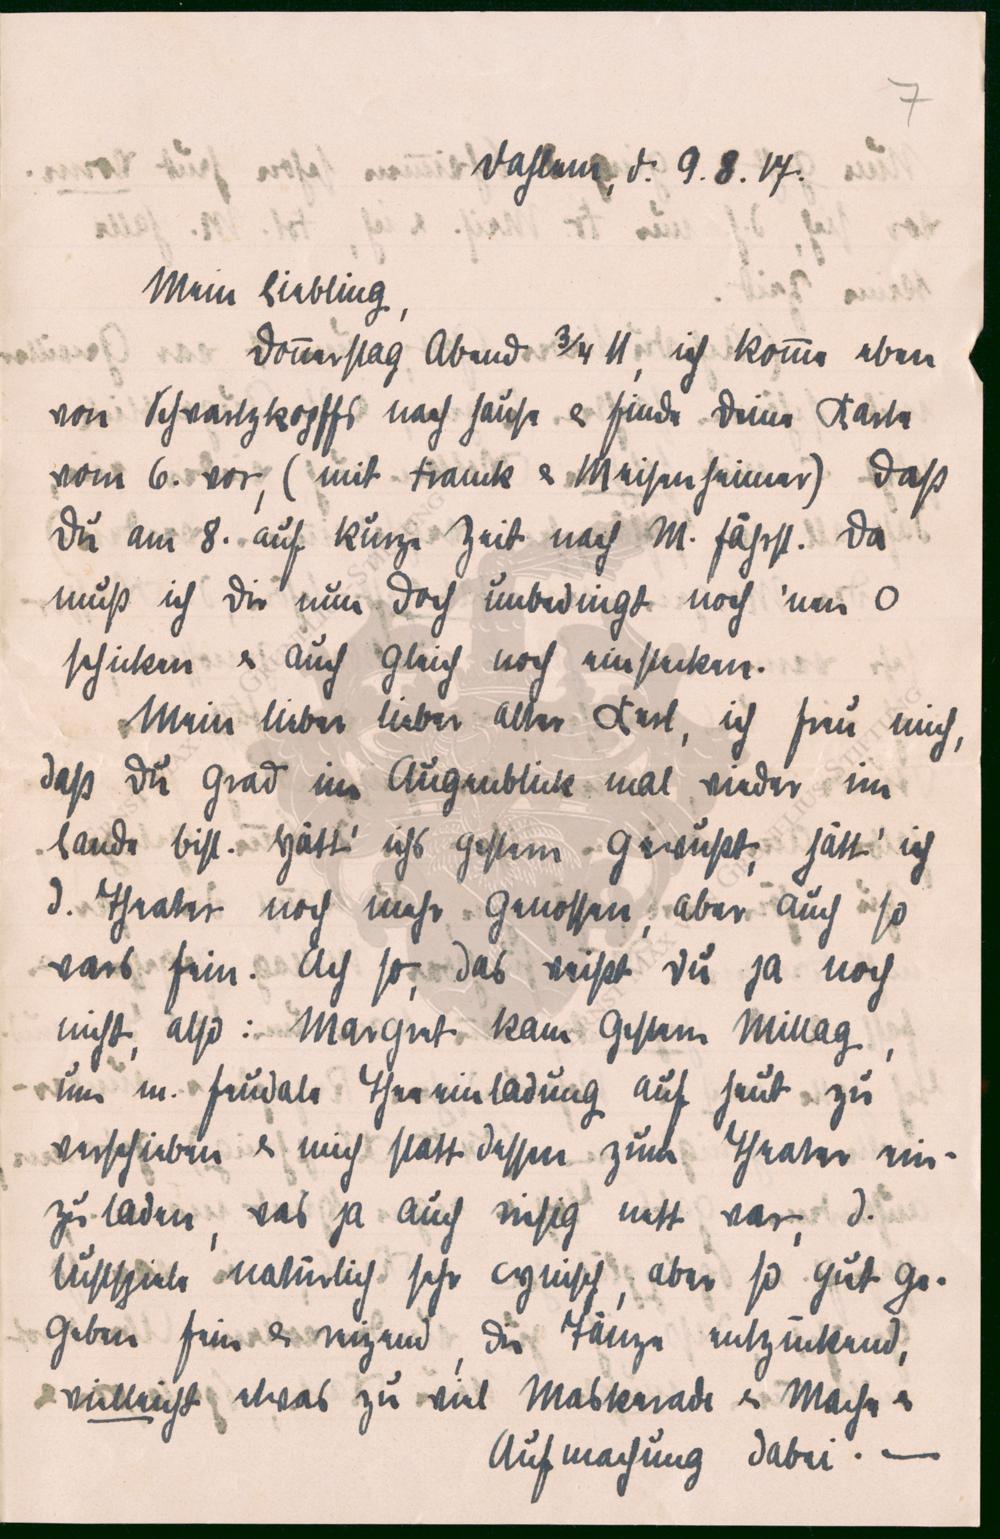 7
Dahlem, d. 9. 8. 17.
Mein Liebling,
Donnerstag Abend ¾ 11, ich komme eben
von Schwartzkopffs nach Hause & finde Deine Karte
vom 6. vor, (mit Franck & Meisenheimer) daß
Du am 8. auf kurze Zeit nach M. fährst. Da
muß ich Dir nun doch unbedingt noch 'nen O
schicken & auch gleich noch einstecken.
Mein lieber lieber alter Kerl, ich freu mich,
daß Du grad im Augenblick mal wieder im
Lande bist. Hätt' ichs gestern gewußt, hätt' ich
d. Theater noch mehr genossen, aber auch so
wars fein. Ach so, das weißt Du ja noch
nicht, also: Margret kam gestern Mittag,
um m. feudale Theeeinladung auf heut zu
verschieben & mich statt dessen zum Theater ein-
zuladen, was ja auch riesig nett war, d.
Lustspiele natürlich sehr cynisch, aber so gut ge-
geben fein & reizend, die Tänze entzückend,
vielleicht etwas zu viel Maskerade & Mache &
Aufmachung dabei. —